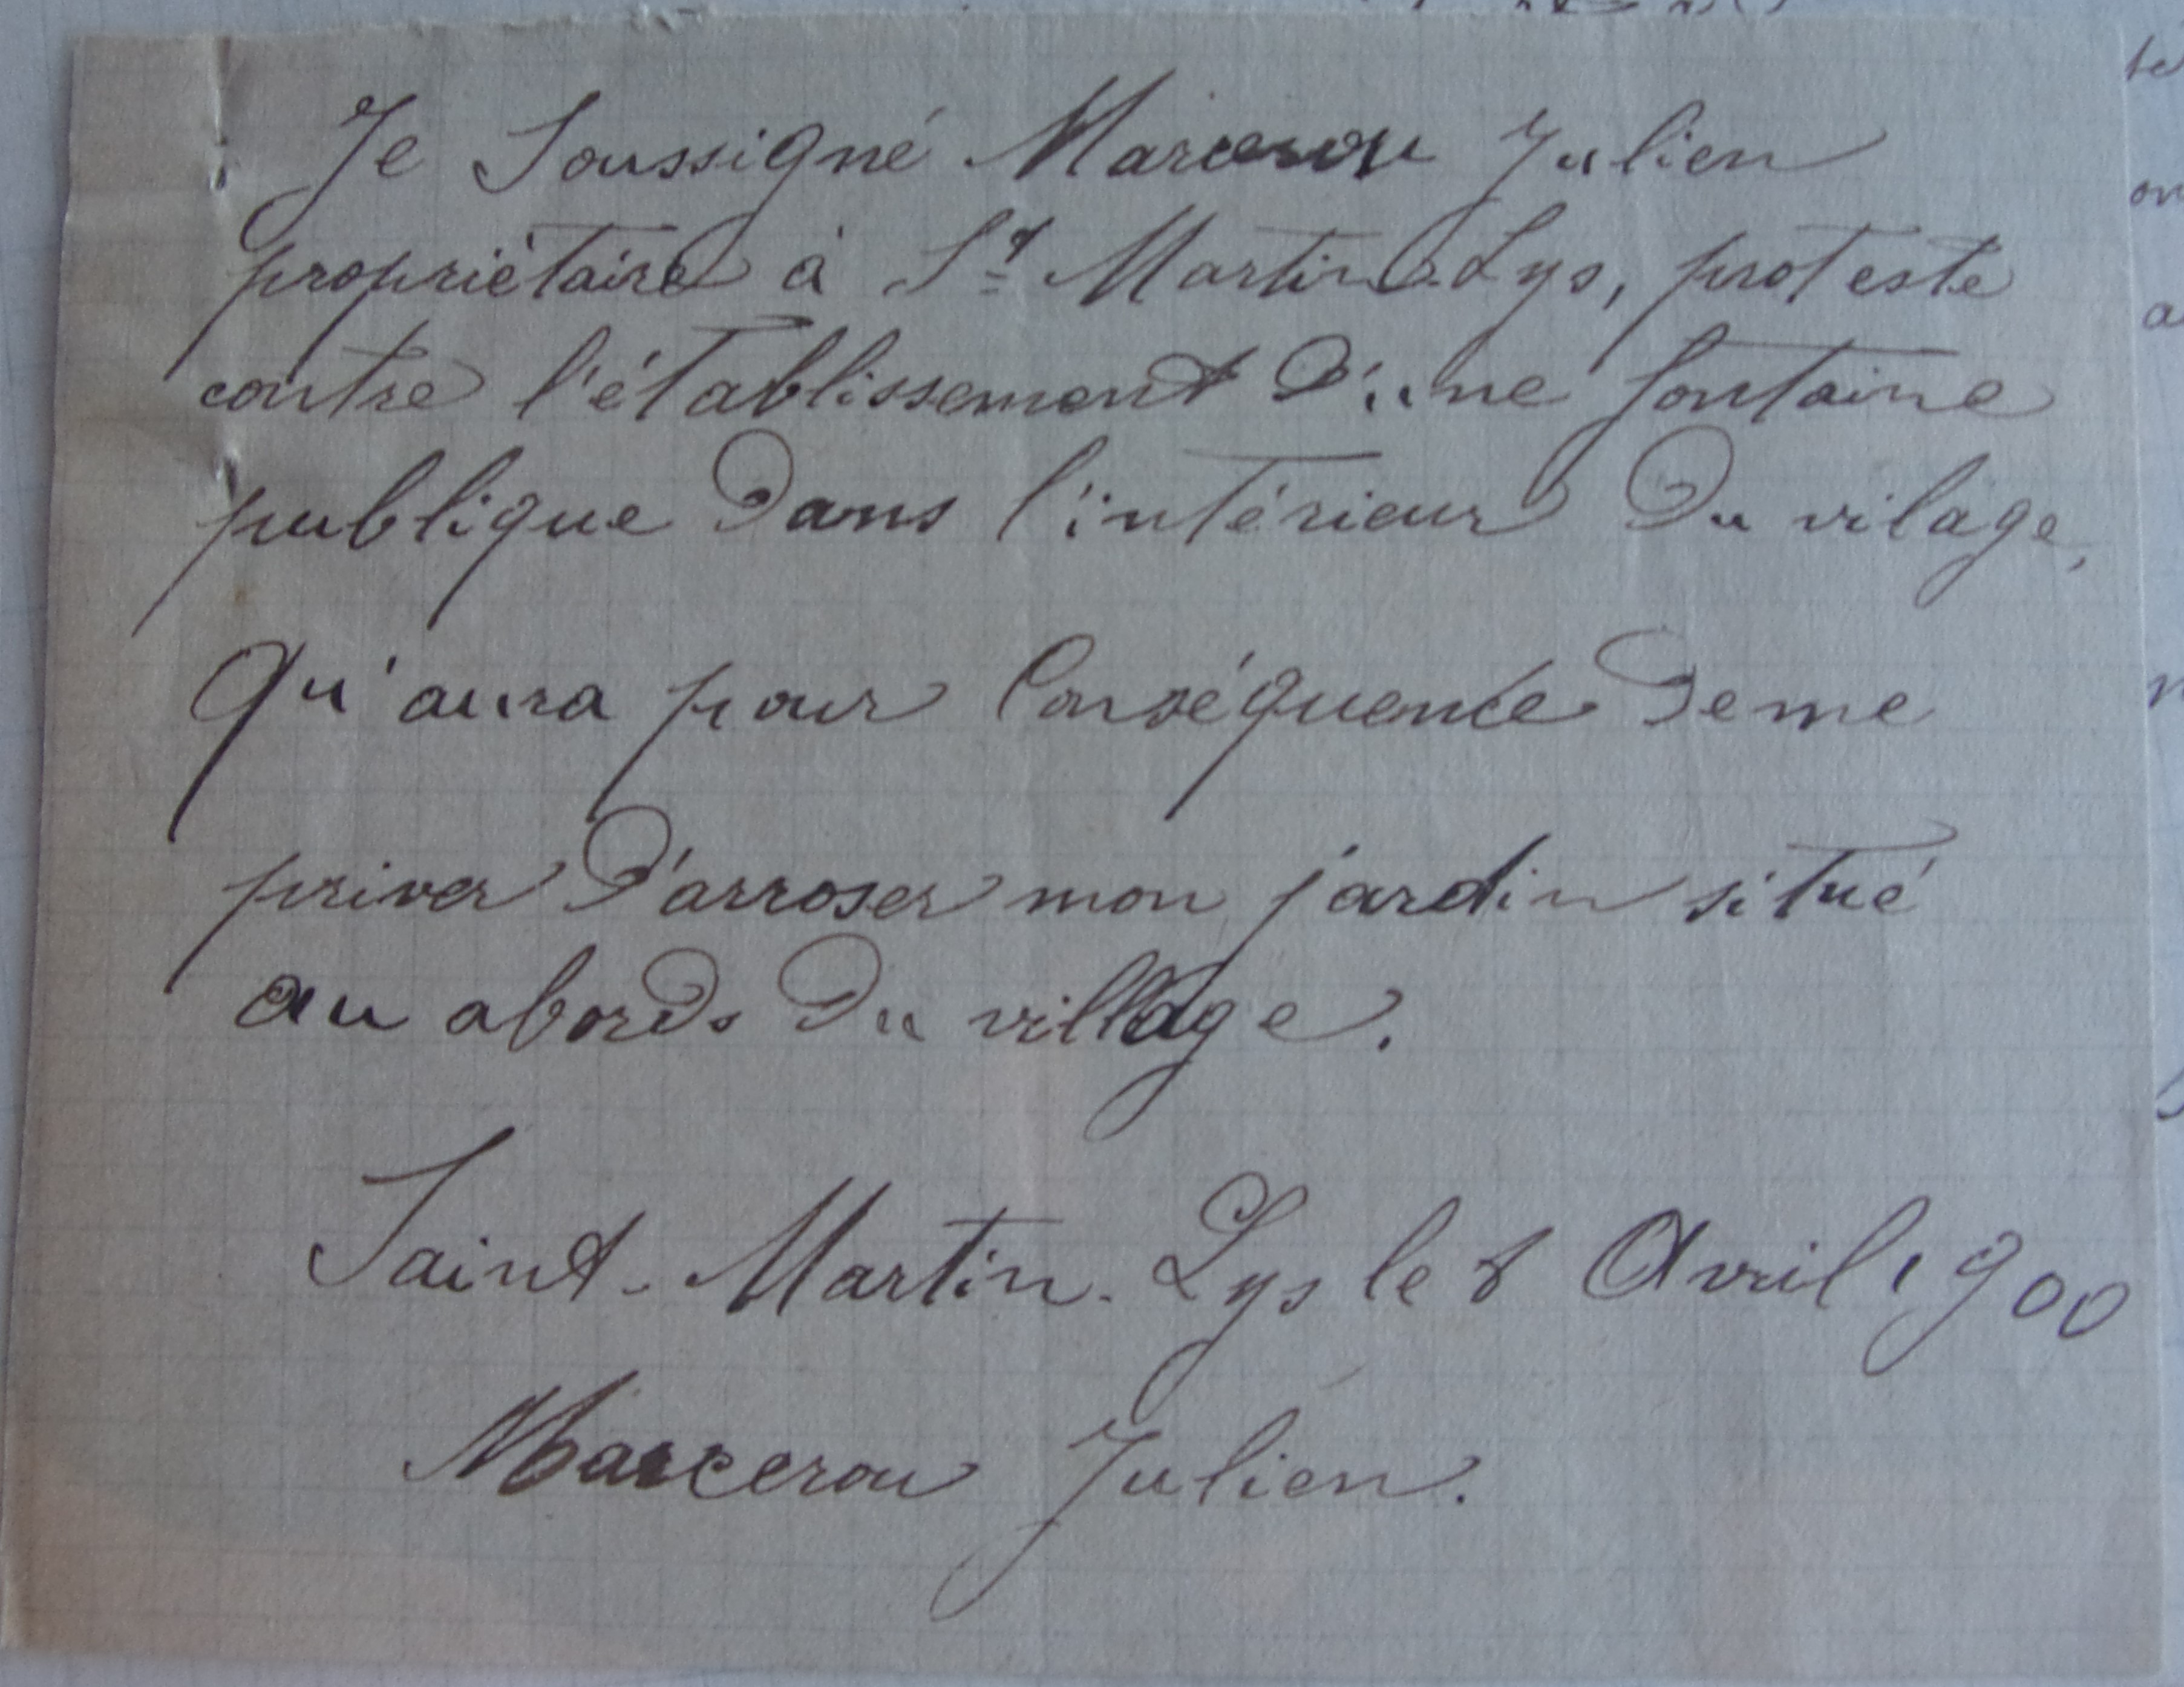 Je Soussigné Marcerou Julien
propriétaire à St Martin-Lys, proteste
contre l'établissement d'une fontaine
publique dans l'intérieur du vilage,
Qu'aura pour Conséquence de me
priver d'arroser mon jardin situé
au abords du village.
Saint-Martin-Lys le 8 Avril 1900
Marcerou Julien.